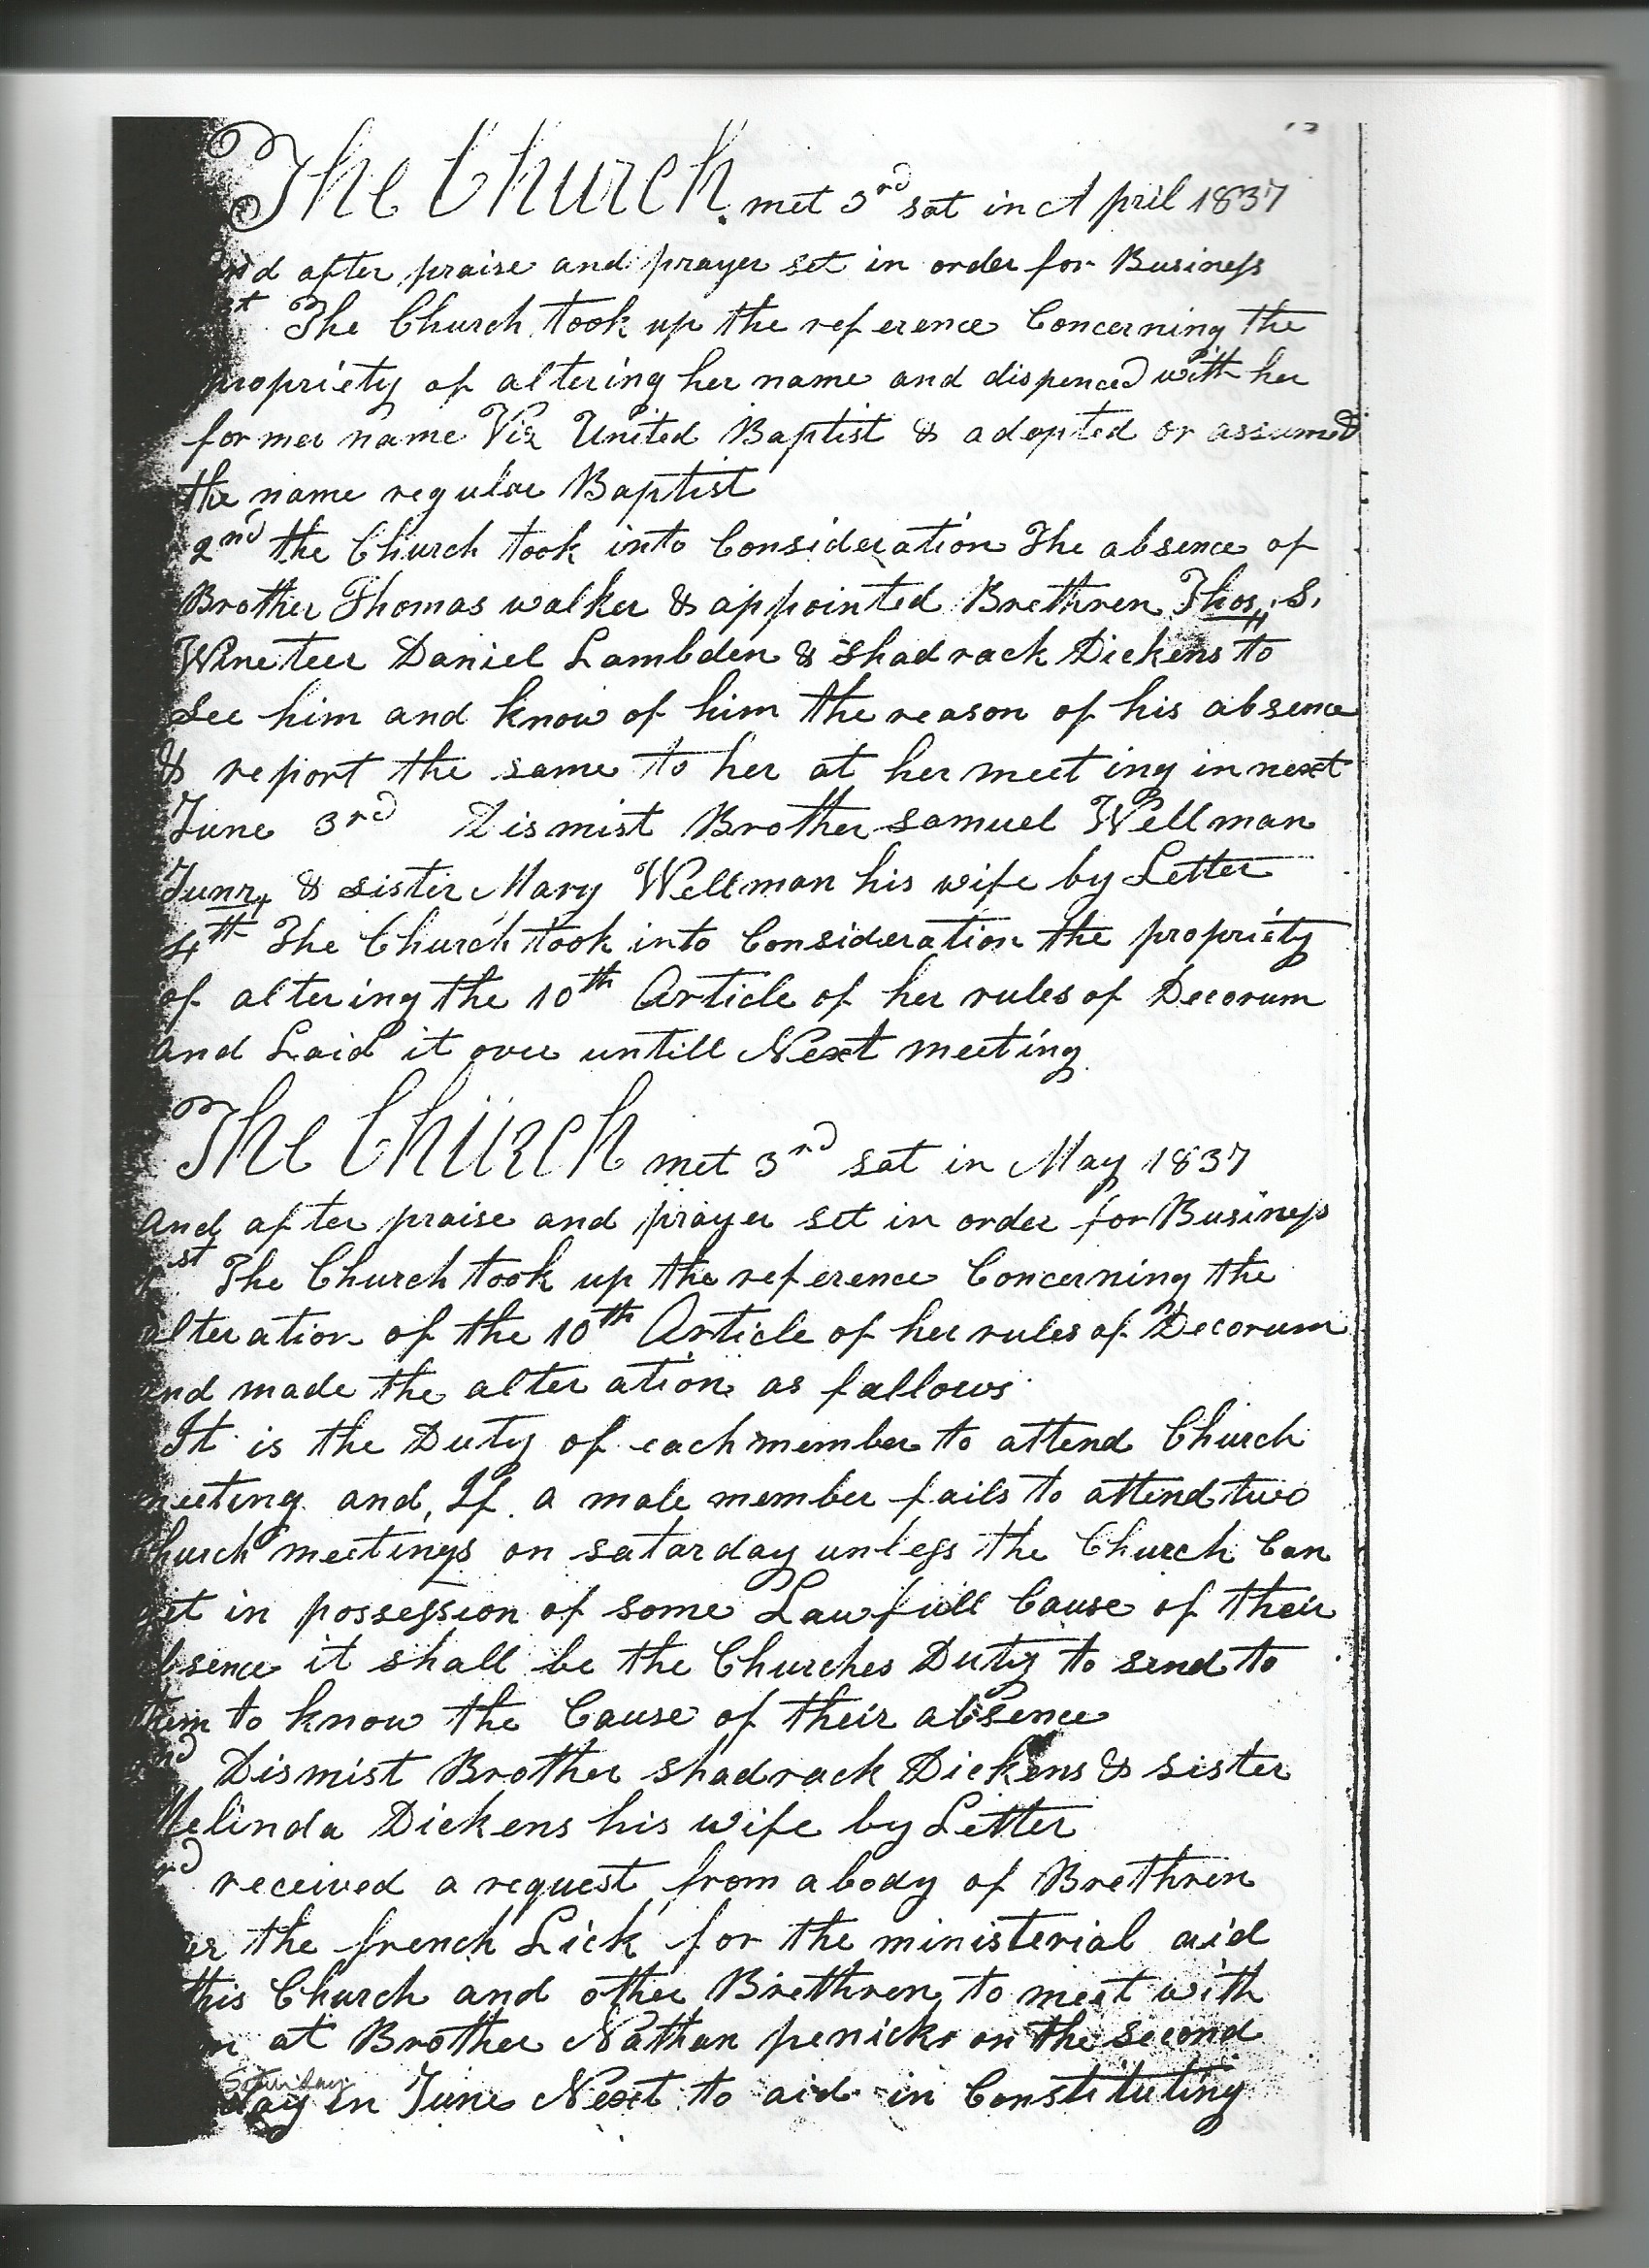 The Church. met 3rd sat in April 1837
nd after praise and prayer set in order for Business
st The Church took up the reference Concerning the
propriety of altering her name and dispenced with her
former name Viz United Baptist & adopted or assumed
the name regular Baptist
2nd the Church took into Consideration The absence of
Brother Thomas walker & appointed Brethren Thos. S.
Wineteer Daniel Lambden & Shadrack Dickens to
See him and know of him the reason of his absence
& report the same to her at her meeting in next
June 3rd Dismist Brother Samuel Wellman
Junr, & sister Mary Wellman his wife by Letter
4th The Church took into Consideration the propriety
of altering the 10th Article of her rules of Decorum
and Laid it over untill Next meeting
The Church met 3rd sat in May 1837
and after praise and prayer set in order for Business
1st The Church took up the reference Concerning the
alteration of the 10th Article of her rules of Decorum
and made the alteration as fallows
It is the Duty of each member to attend Church
meeting and, If a male member fails to attend two
Church meetings on satarday unless the Church Can
get in possession of some Lawfull Cause of their
bsence it shall be the Churches Duty to send to
them to know the Cause of their absence
nd Dismist Brother Shadrack Dickens & sister
Melinda Dickens his wife by Letter
rd received a request from a body of Brethren
er the french Lick for the ministerial aid
this Church and other Brethren to meet with
m at Brother Nathan penicks on the second
Saturday
day in June Next to aid in Constituting